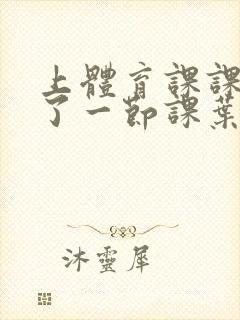 上體育課課
了一節課葉
沐靈犀